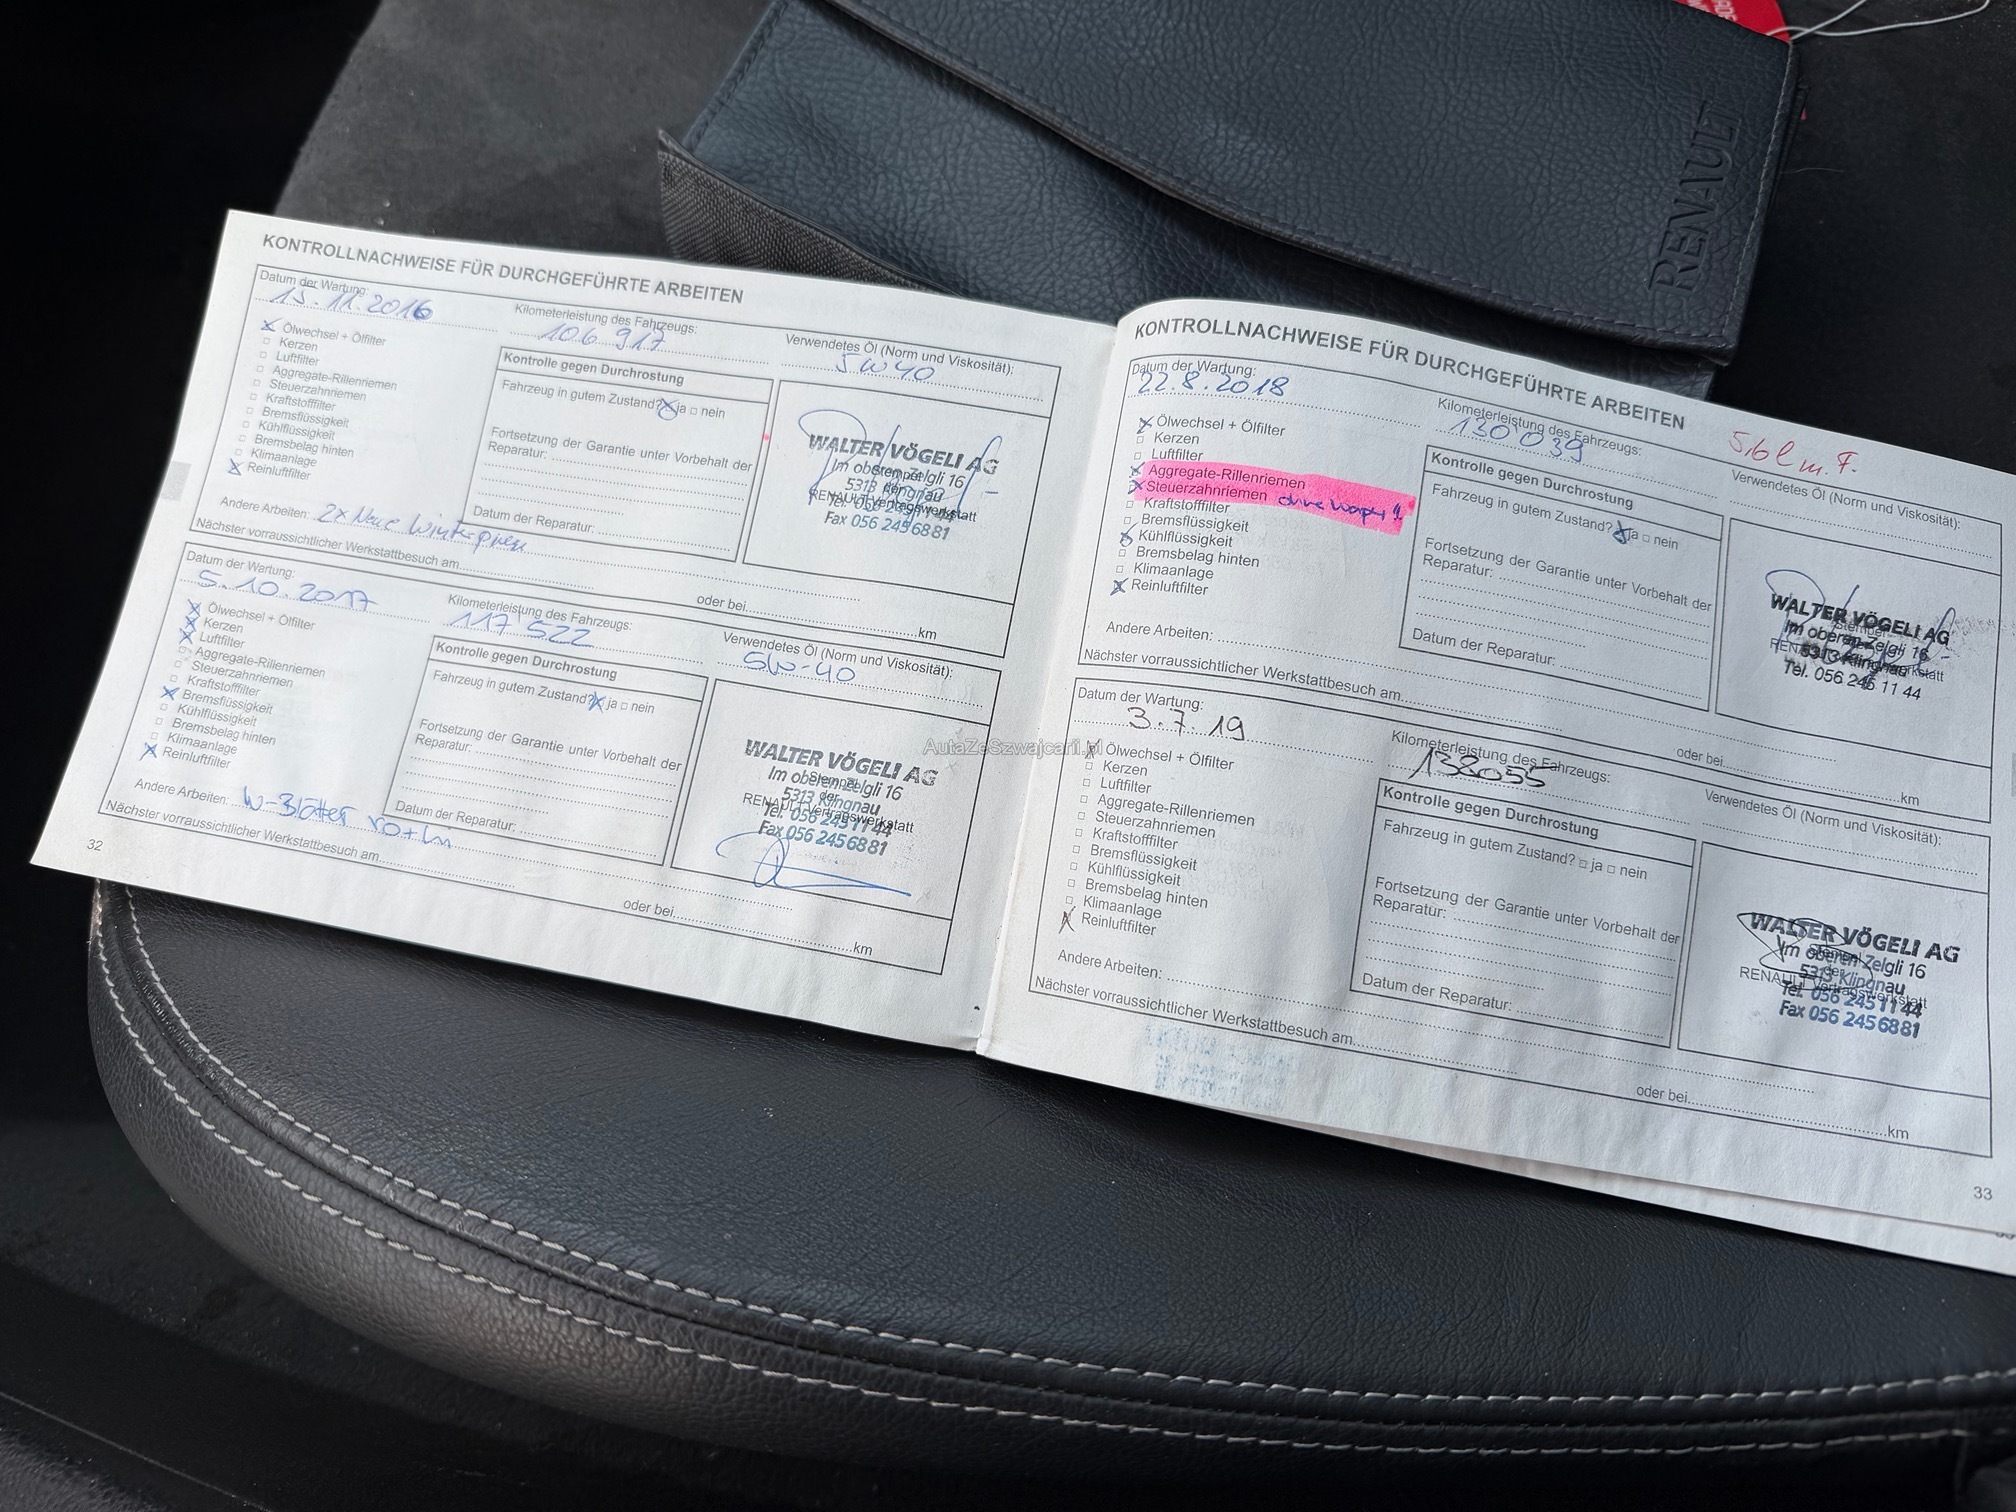 RENAULT
KONTROLLNACHWEISE FÜR DURCHGEFÜHRTE ARBEITEN
Datum der Wartung:
15.11.2016
Kilometerleistung des Fahrzeugs:
106 917
Verwendetes Öl (Norm und Viskosität):
5W40
Ölwechsel + Ölfilter
Kerzen
Luftfilter
Aggregate-Rillenriemen
Steuerzahnriemen
Kraftstofffilter
Bremsflüssigkeit
Kühlflüssigkeit
Bremsbelag hinten
Klimaanlage
Reinluftfilter
Kontrolle gegen Durchrostung
Fahrzeug in gutem Zustand? ja nein
Fortsetzung der Garantie unter Vorbehalt der
Reparatur:
Datum der Reparatur:
WALTER VÖGELI AG
Im oberen Zelgli 16
Stempel
5313 Klingnau
RENAULT Vertragswerkstatt
Tel. 056 245 11 44
Fax 056 245 68 81
Andere Arbeiten: 2x Neue Winterpneu
Nächster vorraussichtlicher Werkstattbesuch am
oder bei km
Datum der Wartung:
5.10.2017
Kilometerleistung des Fahrzeugs:
117 522
Verwendetes Öl (Norm und Viskosität):
5W-40
Ölwechsel + Ölfilter
Kerzen
Luftfilter
Aggregate-Rillenriemen
Steuerzahnriemen
Kraftstofffilter
Bremsflüssigkeit
Kühlflüssigkeit
Bremsbelag hinten
Klimaanlage
Reinluftfilter
Kontrolle gegen Durchrostung
Fahrzeug in gutem Zustand? ja nein
Fortsetzung der Garantie unter Vorbehalt der
Reparatur:
Datum der Reparatur:
WALTER VÖGELI AG
Im oberen Zelgli 16
Stempel
5313 Klingnau
der
RENAULT Vertragswerkstatt
Tel. 056 245 11 44
Fax 056 245 68 81
Andere Arbeiten: W-Blätter
Nächster vorraussichtlicher Werkstattbesuch am
oder bei km
32
KONTROLLNACHWEISE FÜR DURCHGEFÜHRTE ARBEITEN
Datum der Wartung:
22.8.2018
Kilometerleistung des Fahrzeugs:
130 039
5,6l m.F.
Verwendetes Öl (Norm und Viskosität):
Ölwechsel + Ölfilter
Kerzen
Luftfilter
Aggregate-Rillenriemen
Steuerzahnriemen ohne
Kraftstofffilter
Bremsflüssigkeit
Kühlflüssigkeit
Bremsbelag hinten
Klimaanlage
Reinluftfilter
Kontrolle gegen Durchrostung
Fahrzeug in gutem Zustand? ja nein
Fortsetzung der Garantie unter Vorbehalt der
Reparatur:
Datum der Reparatur:
WALTER VÖGELI AG
Stempel
Im oberen Zelgli 16
5313 Klingnau
Tel. 056 245 11 44
Andere Arbeiten:
Nächster vorraussichtlicher Werkstattbesuch am
oder bei km
Datum der Wartung:
3.7.19
Kilometerleistung des Fahrzeugs:
138055
Verwendetes Öl (Norm und Viskosität):
Ölwechsel + Ölfilter
Kerzen
Luftfilter
Aggregate-Rillenriemen
Steuerzahnriemen
Kraftstofffilter
Bremsflüssigkeit
Kühlflüssigkeit
Bremsbelag hinten
Klimaanlage
Reinluftfilter
Kontrolle gegen Durchrostung
Fahrzeug in gutem Zustand? ja nein
Fortsetzung der Garantie unter Vorbehalt der
Reparatur:
Datum der Reparatur:
WALTER VÖGELI AG
Im oberen Zelgli 16
5313 Klingnau
der
RENAULT Vertragswerkstatt
Tel. 056 245 11 44
Fax 056 245 68 81
Andere Arbeiten:
Nächster vorraussichtlicher Werkstattbesuch am
oder bei km
33
AutaZeSzwajcarii.pl